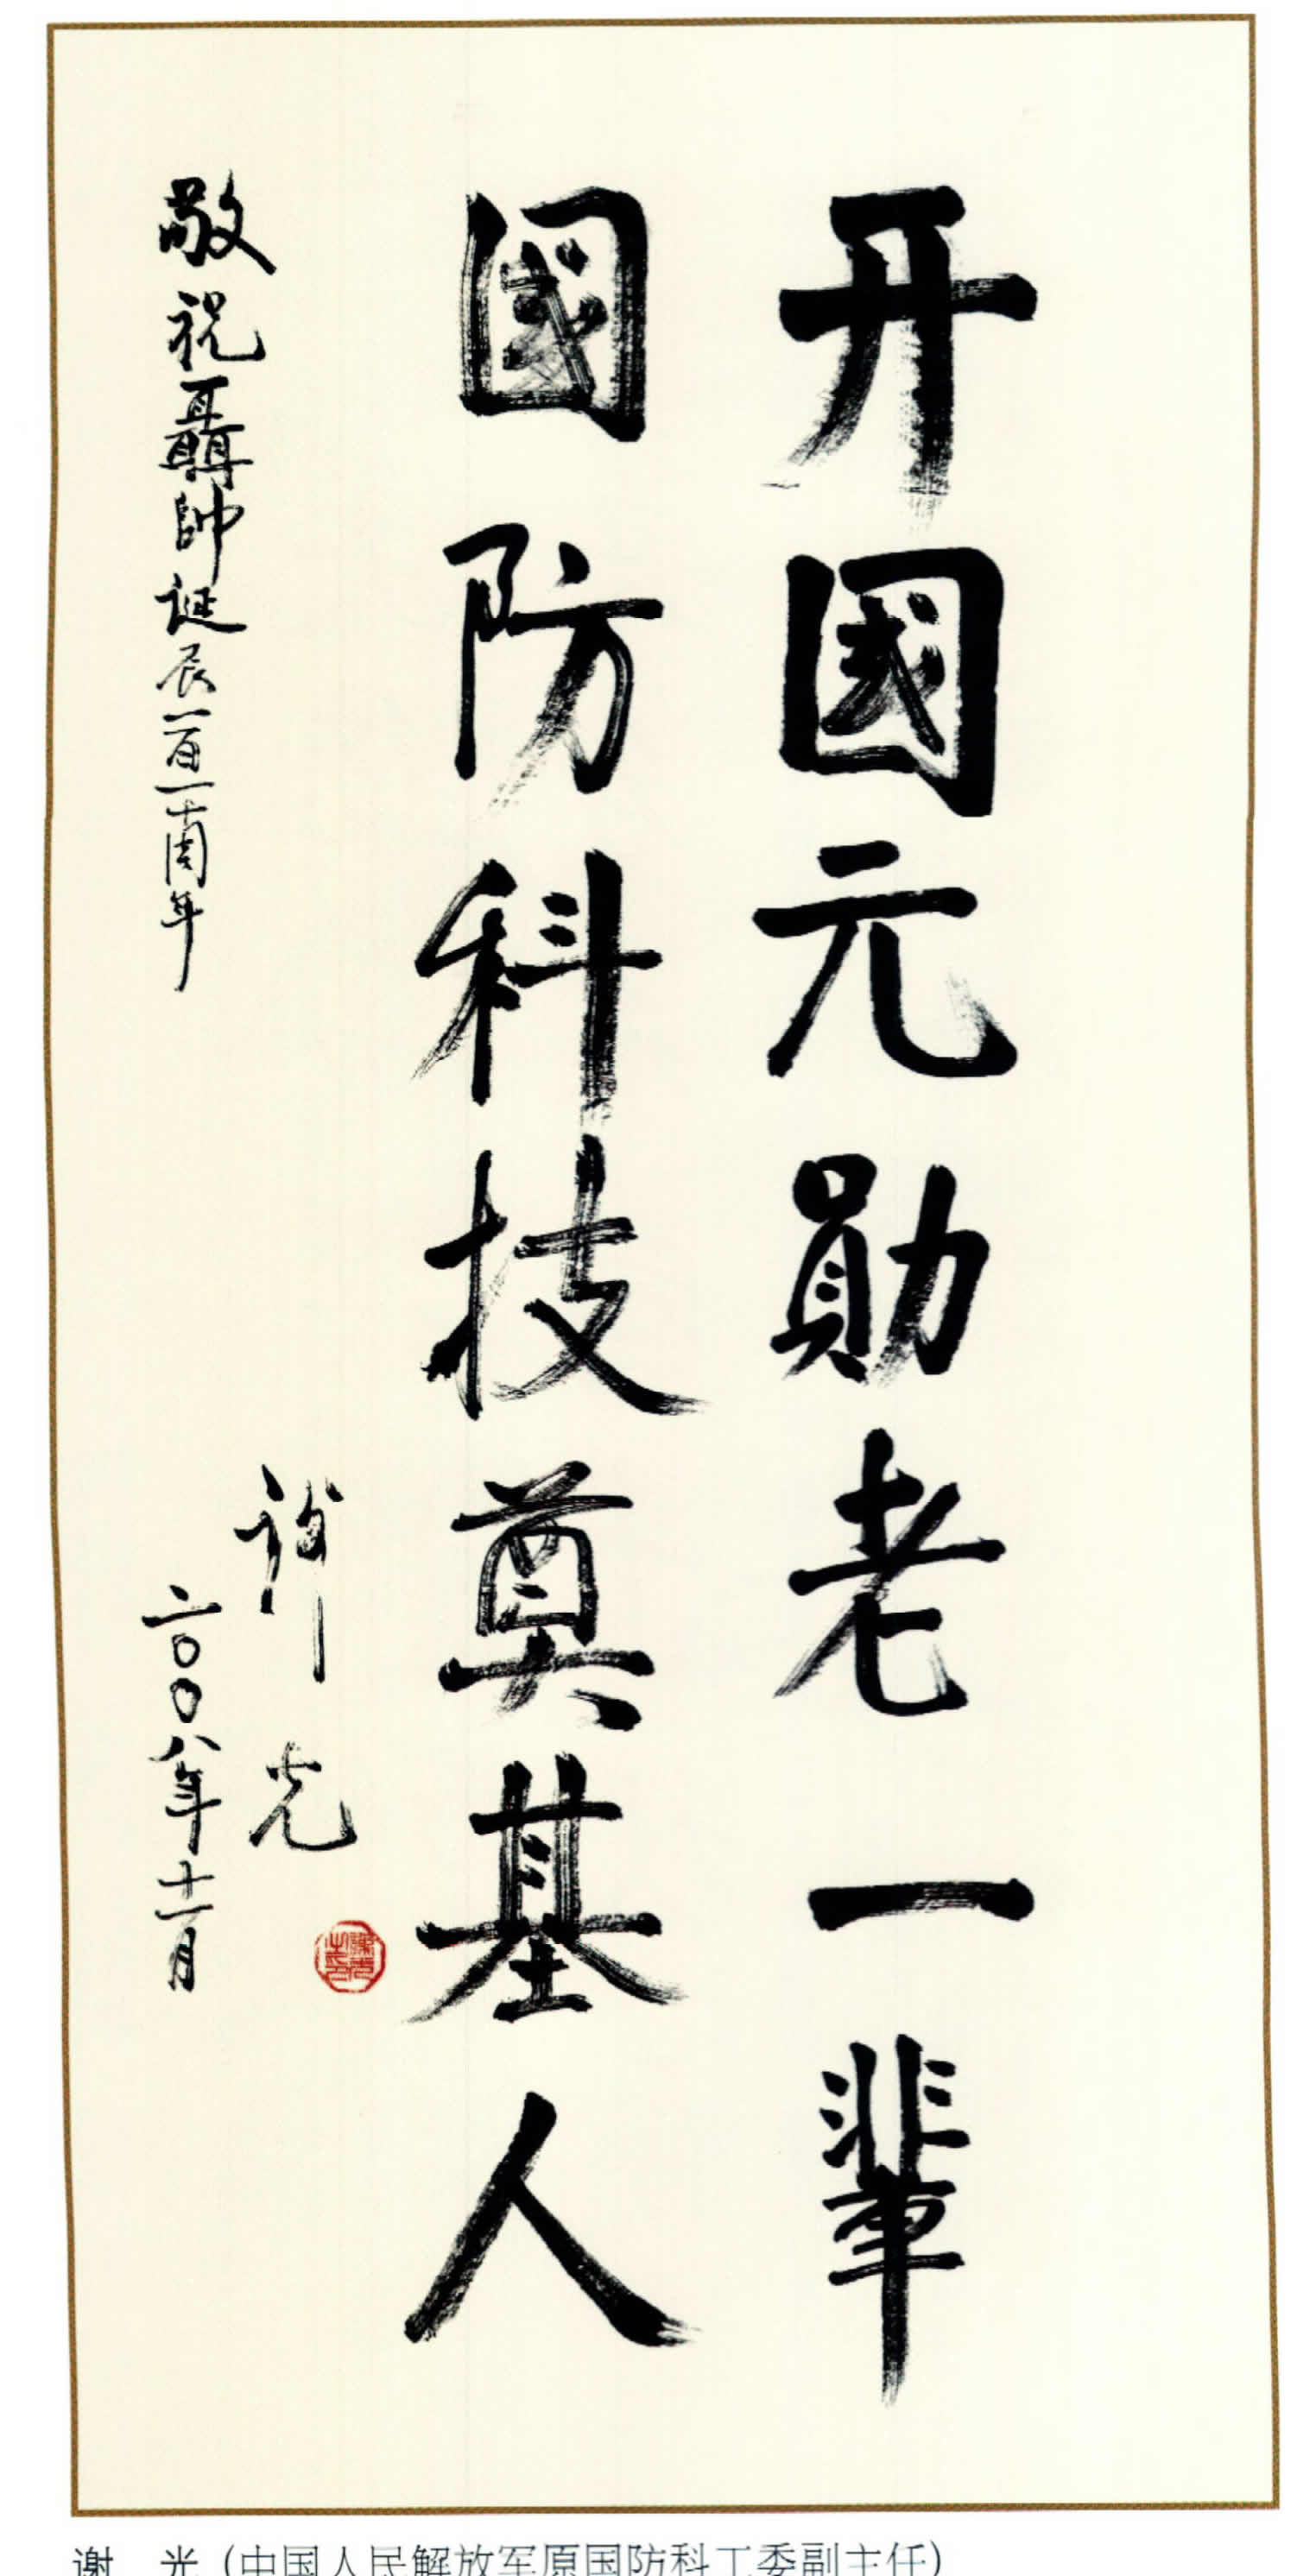 开國元勛老一輩
國防科技奠基人
敬祝聶帥诞辰一百一十周年
谢光
二〇〇八年十一月
谢 光（中国人民解放军原国防科工委副主任）